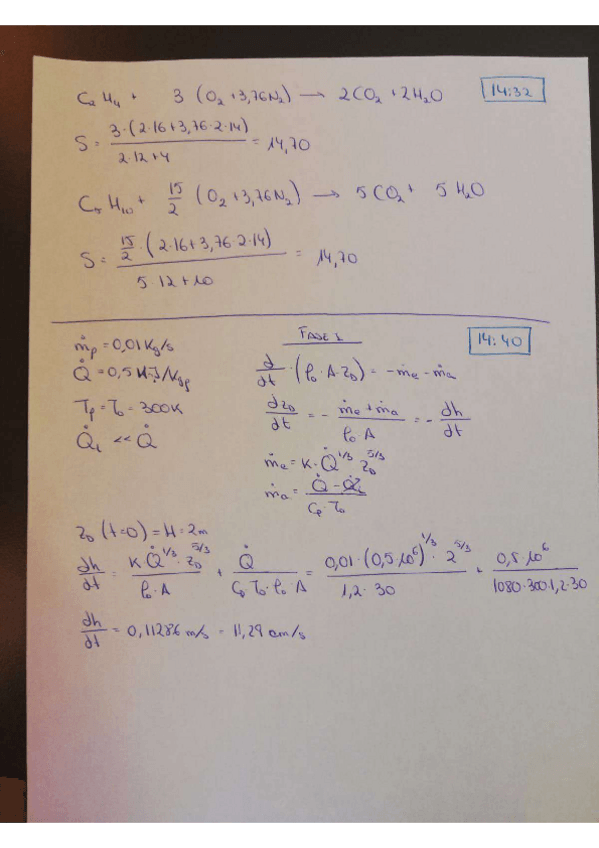 C₂H₄ + 3 (O₂ + 3,76N₂) → 2CO₂ + 2H₂O
14:32
S = 3·(2·16+3,76·2·14) / 2·12+4 = 14,70
C₅H₁₀ + 15/2 (O₂ + 3,76N₂) → 5CO₂ + 5H₂O
S = 15/2·(2·16+3,76·2·14) / 5·12+10 = 14,70
FASE 1
14:40
ṁp = 0,01 Kg/s
Q̇ = 0,5 MJ/Kgp
Tp = T₀ = 300K
Q̇ₗ << Q̇
d/dt·(ρ₀·A·z₀) = -ṁe - ṁa
dz₀/dt = - ṁe + ṁa / ρ₀·A = - dh/dt
ṁe = K·Q̇^1/3·z₀^5/3
ṁa = Q̇ - Q̇ₗ / Cp·T₀
z₀ (t=0) = H = 2m
dh/dt = K·Q̇^1/3·z₀^5/3 / ρ₀·A + Q̇ / Cp·T₀·ρ₀·A = 0,01·(0,5·10⁶)^1/3·2^5/3 / 1,2·30 + 0,5·10⁶ / 1080·300·1,2·30
dh/dt = 0,11286 m/s = 11,29 cm/s